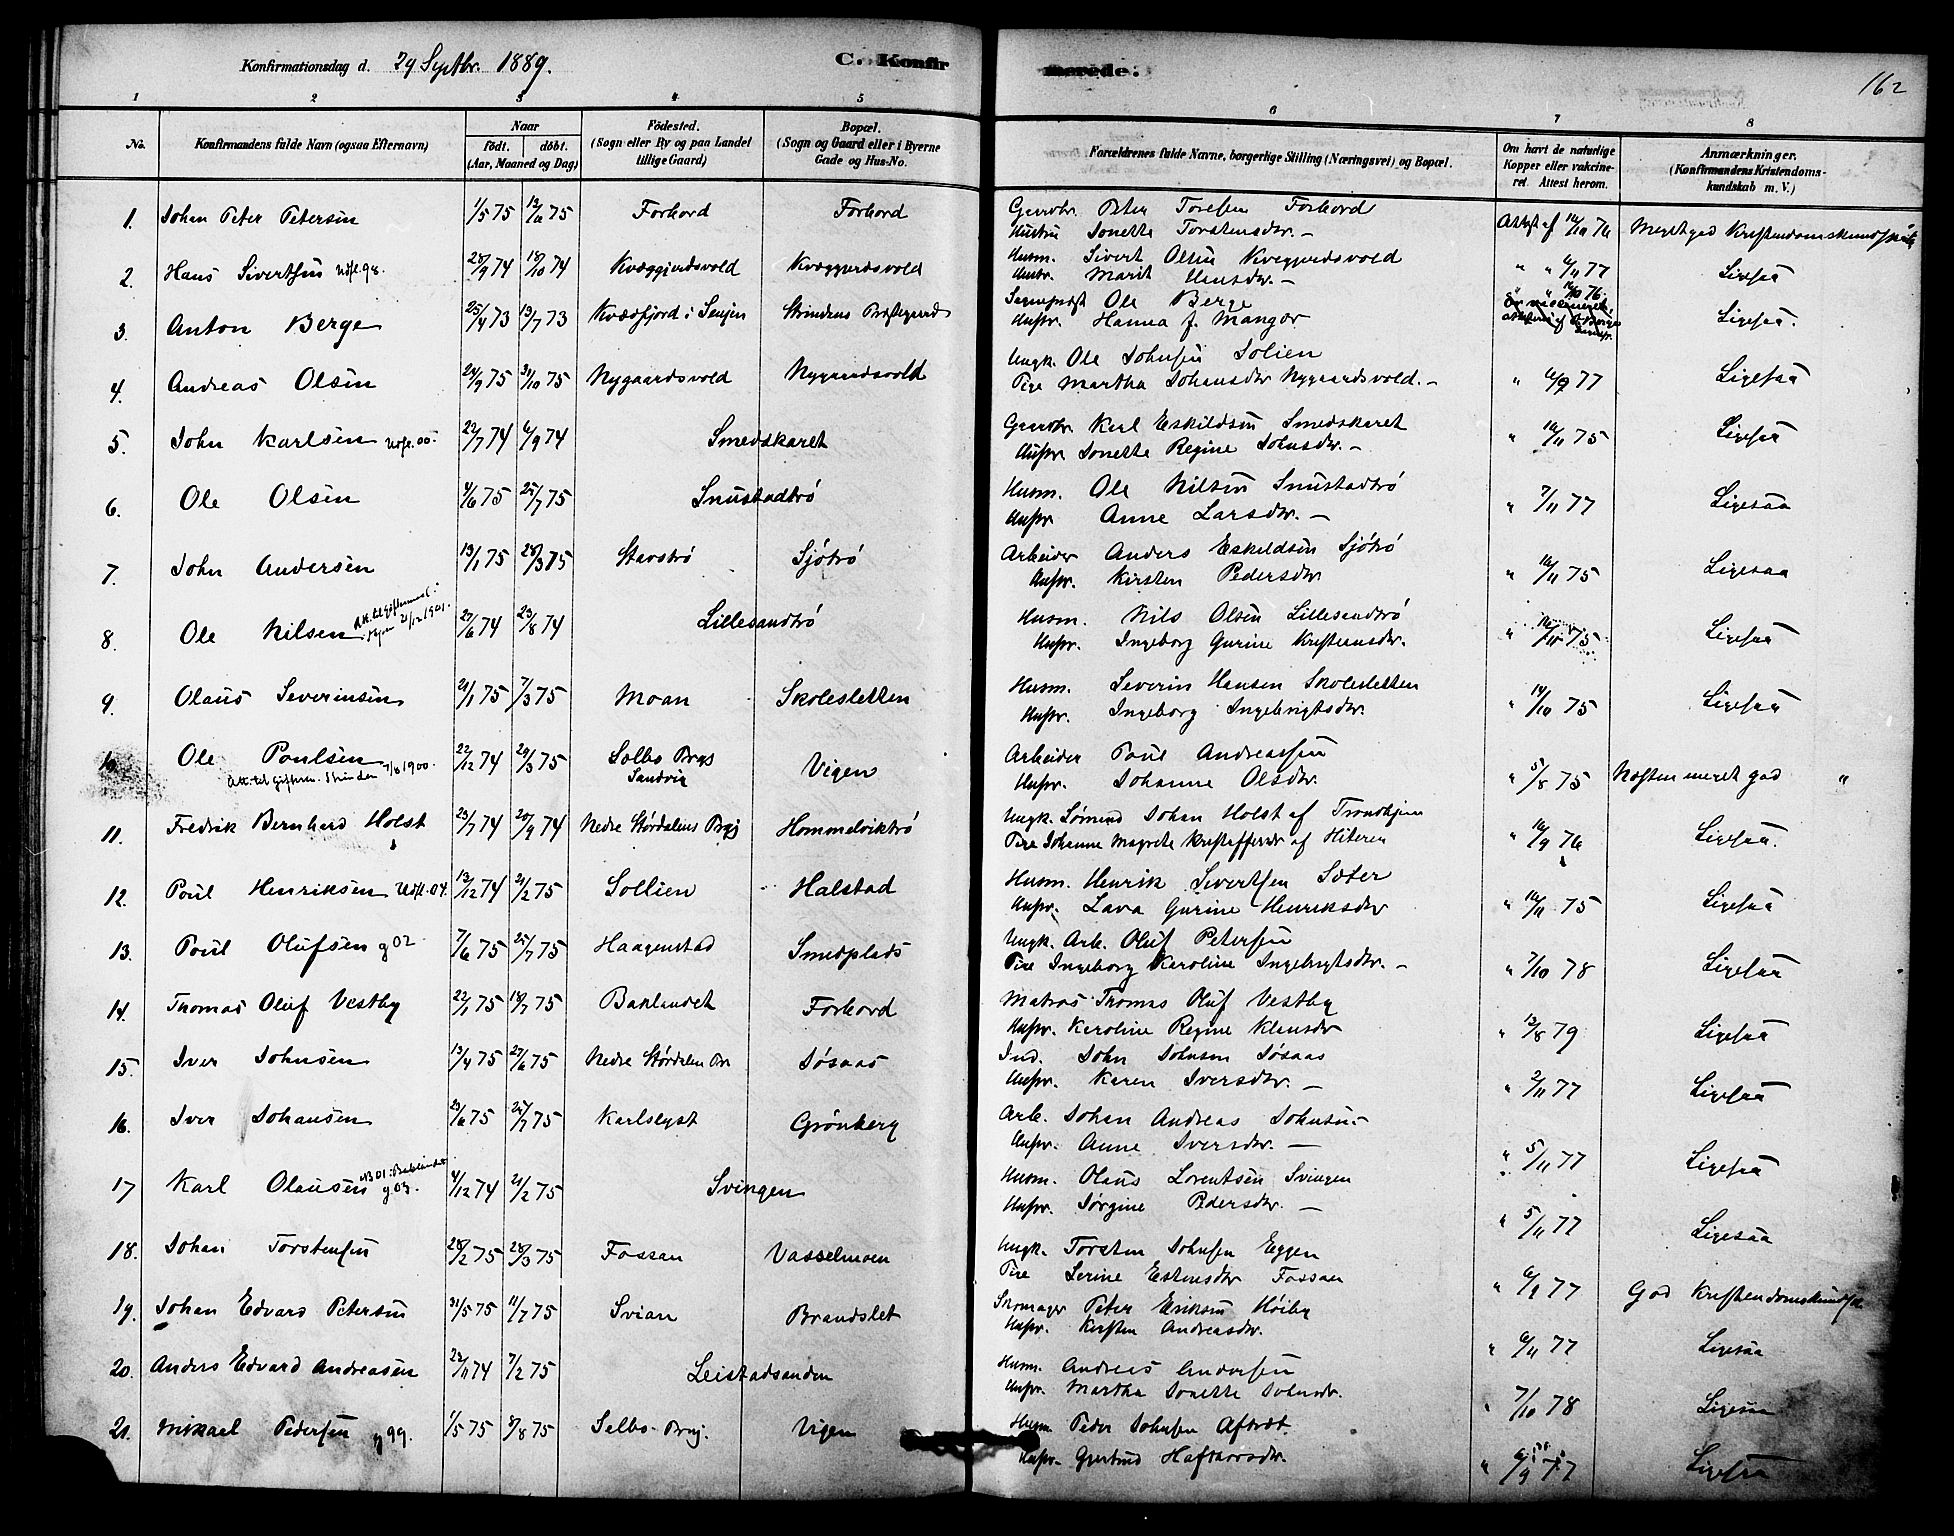 Konfirmationsdag d. 29 Septbr. 1889. C. Konfirmerede. 162
1 2 3 4 5 6 7 8
No. Konfirmandens fulde Navn (ogsaa Efternavn) Naar født. døbt. (Aar, Maaned og Dag) Fødested. (Sogn eller By og paa Landet tillige Gaard) Bopæl. (Sogn og Gaard eller i Byerne Gade og Hus-No. Forældrenes fulde Navne, borgerlige Stilling (Næringsvei) og Bopæl. Om havt de naturlige Kopper eller vakcineret Attest herom. Anmærkninger. (Konfirmandens Kristendomskundskab m. V.)
1. Johan Peter Petersen 1/5 75 Forbord Forbord Gaardbr. Peter Toresen Forbord
Hustru Jonetta Torstensdtr. — Attest af 16/10 76 Meget god Kristendomskundskab
2. Hans Sivertsen Udfl. 98. 28/9 74 18/10 74 Kvæggjerdsvold Kvæggjerdsvold Husm. Sivert Olsen Kveggjerdsvold
Hustr. Marit Hansdtr. — " " 6/11 77 Ligesaa
3. Anton Berge 25/4 73 13/7 73 Kvædfjord i Senjen Strindens Præstegaard Sognepræst Ole Berge
Hustr. Hanna f. Mangor " " 16/10 76. Ligesaa.
4. Andreas Olsen 24/9 75 31/10 75 Nygaardsvold Nygaardsvold Ungk. Ole Johnsen Solien
Pige Martha Johansdtr Nygaardsvold. — " 6/9 77 Ligesaa
5. John Karlsen Udfl. 00. 22/7 74 6/9 74 Smedskaret Gaardbr. Karl Eskildsen Smedskaret
Hustr. Jonetta Regine Johnsdtr. — " 16/11 75 Ligesaa
6. Ole Olsen 4/6 75 25/7 75 Snustadtrø Husm. Ole Nilsen Snustadtrø
Hustr. Anne Larsdtr. — " 7/11 77 Ligesaa
7. John Andersen 13/1 75 28/3 75 Stavstrø Sjøtrø Arbeider Anders Eskildsen Sjøtrø
Hustr. Kirsten Pedersdtr " 16/11 75 Ligesaa
8. Ole Nilsen 27/6 74 23/8 74 Lillesandtrø Husm. Nils Olsen Lillesandtrø
Hustr. Ingeborg Gurine Kristiansdtr. " 16/11 75 Ligesaa
9. Olaus Severinsen 21/1 75 7/3 75 Moan Skolesletten Husm. Severin Hansen Skolesletten
Hustr. Ingeborg Ingebrigtsdtr. " 14/10 75 Ligesaa
10. Ole Poulsen 22/12 74 29/3 75 Selbo Prgj Sandvig Vigen Arbeider Poul Andreassen
Att. til Gifterm. Strinden 7/6 1900. Hustr. Johanne Olsdtr. " 5/8 75 Næsten meget god "
11. Fredrik Bernhard Holst 23/7 74 20/9 74 Nedre Størdalens Prgj Hommelviktrø Ungk. Sømand Johan Holst af Trondhjem
Pige Johanne Magrete Kristoffersdtr af Hiteren " 16/9 76 Ligesaa.
12. Poul Henriksen Udfl. 04. 13/12 74 21/2 75 Sollien Halstad Husm. Henrik Sivertsen Sæter
Hustr. Lava Gurine Henriksdtr " 16/11 75 Ligesaa
13. Poul Olufsen g 02 7/6 75 25/7 75 Haagenstad Smedplads Ungk. Arb. Oluf Petersen
Pige Ingeborg Karoline Ingebrigtsdtr. — " 7/10 78 Ligesaa
14. Thomas Oluf Vestby 22/1 75 18/7 75 Baklandet Forbord Matros Thomas Oluf Vestby
Hustr. Karoline Regine Klausdtr " 13/8 79 Ligesaa
15. Iver Johnsen 13/4 75 27/6 75 Nedre Størdalen Pr Døsaas Ind. John Johnsen Døsaas
Hustr. Karen Iversdtr. — " 2/11 77 Ligesaa
16. Iver Johansen 23/6 75 25/7 75 Karlslyst Grønberg Arb. Johan Andreas Johnsen
Hustr. Anne Iversdtr. — " 5/11 77 Ligesaa
17 Karl Olausen g 03. 4/12 74 21/2 75 Svingen Husm. Olaus Lorentsen Svingen
Hustr. Jørgine Pedersdtr. — " 5/11 77 Ligesaa
18. Johan Torstensen 28/2 75 28/3 75 Fossan Vasselmoen Ungk. Torsten Johnsen Eggen
Pige Serine Estensdtr Fossan " 6/9 77 God Kristendomskundsk.
19. Johan Edvard Petersen 31/5 75 11/7 75 Svian Brandslet Skomager Peter Eriksen Høiby
Hustr. Kirsten Andreasdtr. " 6/11 77 Ligesaa
20. Anders Edvard Andreasen 23/11 74 7/2 75 Leistadsanden Husm. Andreas Andersen
Hustr. Martha Jonetta Johnsdtr. " 7/10 78 Ligesaa
21. Mikael Pedersen g 99. 1/5 75 8/8 75 Selbo Prgj. Vigen Husm. Peder Johnsen Aftræt.
Hustr. Gjertrud Haftorsdtr. " 6/9 77 Ligesaa